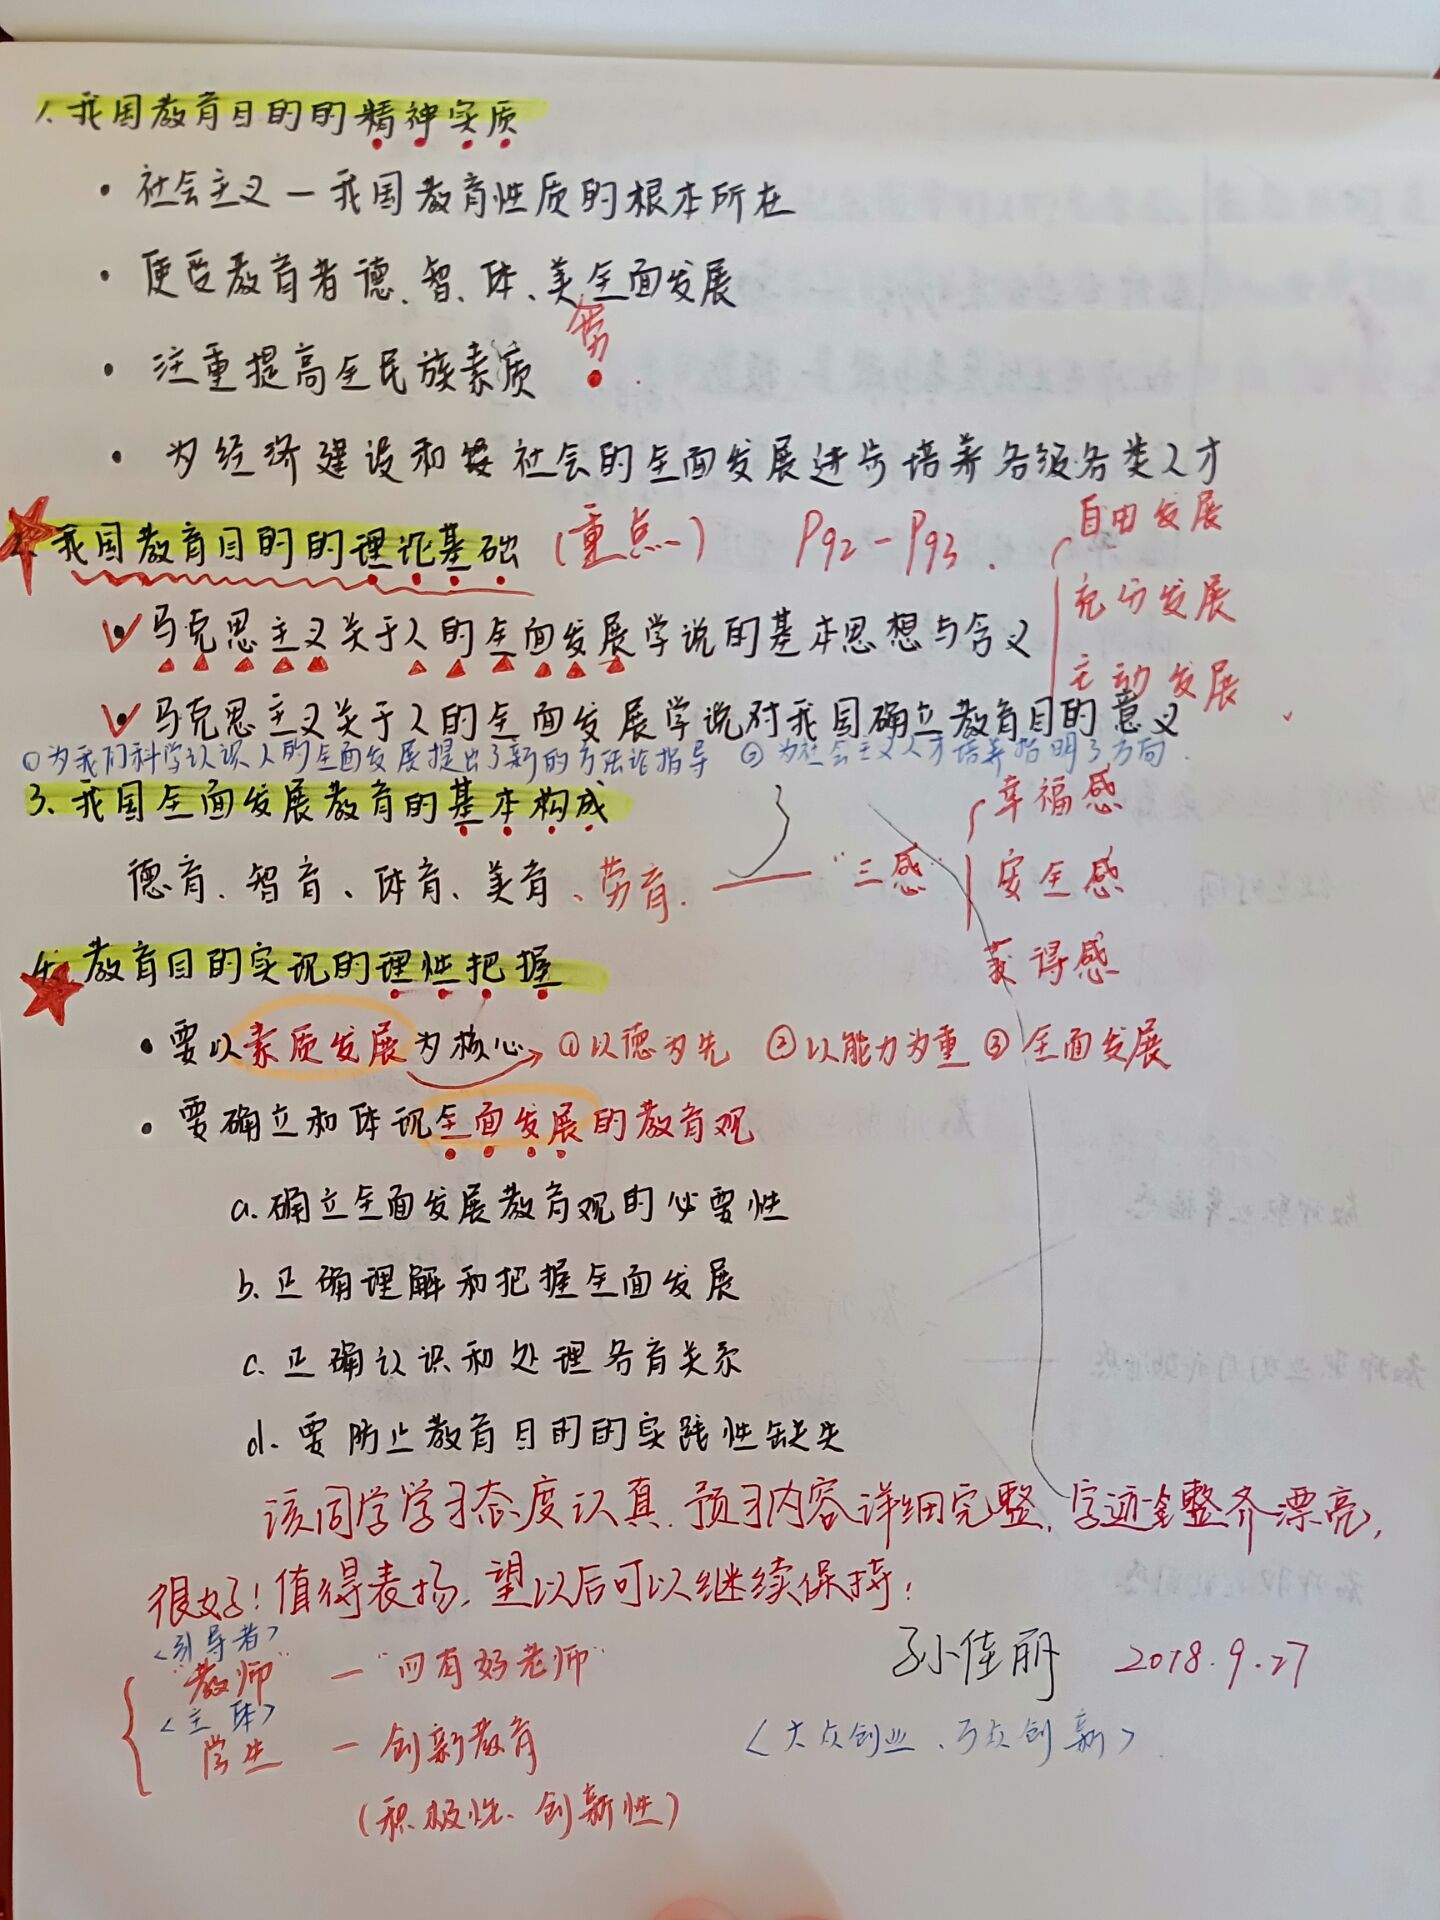 1. 我国教育目的的精神实质
· 社会主义—我国教育性质的根本所在
· 使受教育者德、智、体、美全面发展
劳
· 注重提高全民族素质
· 为经济建设和社会的全面发展进步培养各级各类人才
我国教育目的的理论基础 (重点) P92-P93.
自由发展
充分发展
主动发展
✓ 马克思主义关于人的全面发展学说的基本思想与含义
✓ 马克思主义关于人的全面发展学说对我国确立教育目的的意义
①为我们科学认识人的全面发展提出了新的方法论指导 ②为社会主义人才培养指明了方向.
3. 我国全面发展教育的基本构成
德育、智育、体育、美育、劳育.
"三感"
幸福感
安全感
获得感
4. 教育目的实现的理性把握
· 要以素质发展为核心 → ①以德为先 ②以能力为重 ③全面发展
· 要确立和体现全面发展的教育观
a. 确立全面发展教育观的必要性
b. 正确理解和把握全面发展
c. 正确认识和处理各育关系
d. 要防止教育目的的实践性缺失
该同学学习态度认真, 预习内容详细完整, 字迹整齐漂亮,
很好! 值得表扬, 望以后可以继续保持!
<引导者>
"教师" — "四有好老师"
孙佳丽 2018.9.27
<主体>
学生 — 创新教育
<大众创业、万众创新>
(积极性、创新性)